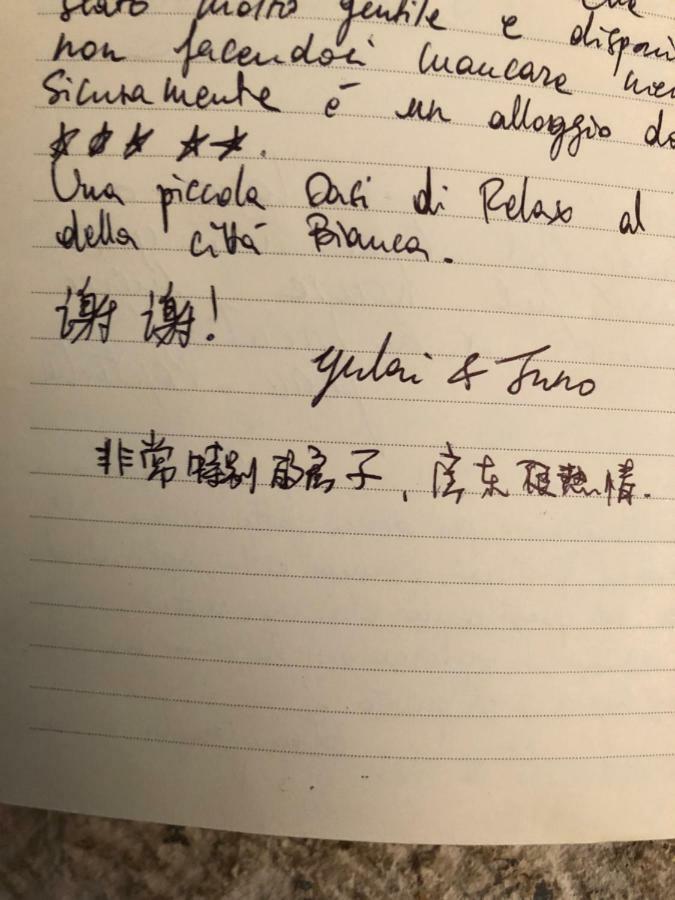 stato molto gentile e disponi
non facendoci mancare
Sicuramente è un alloggio da
★★★ ★★.
Una piccola Oasi di Relax al
della città Bianca.
谢谢!
Yulai & Juno
非常特别的房子,房东很热情.